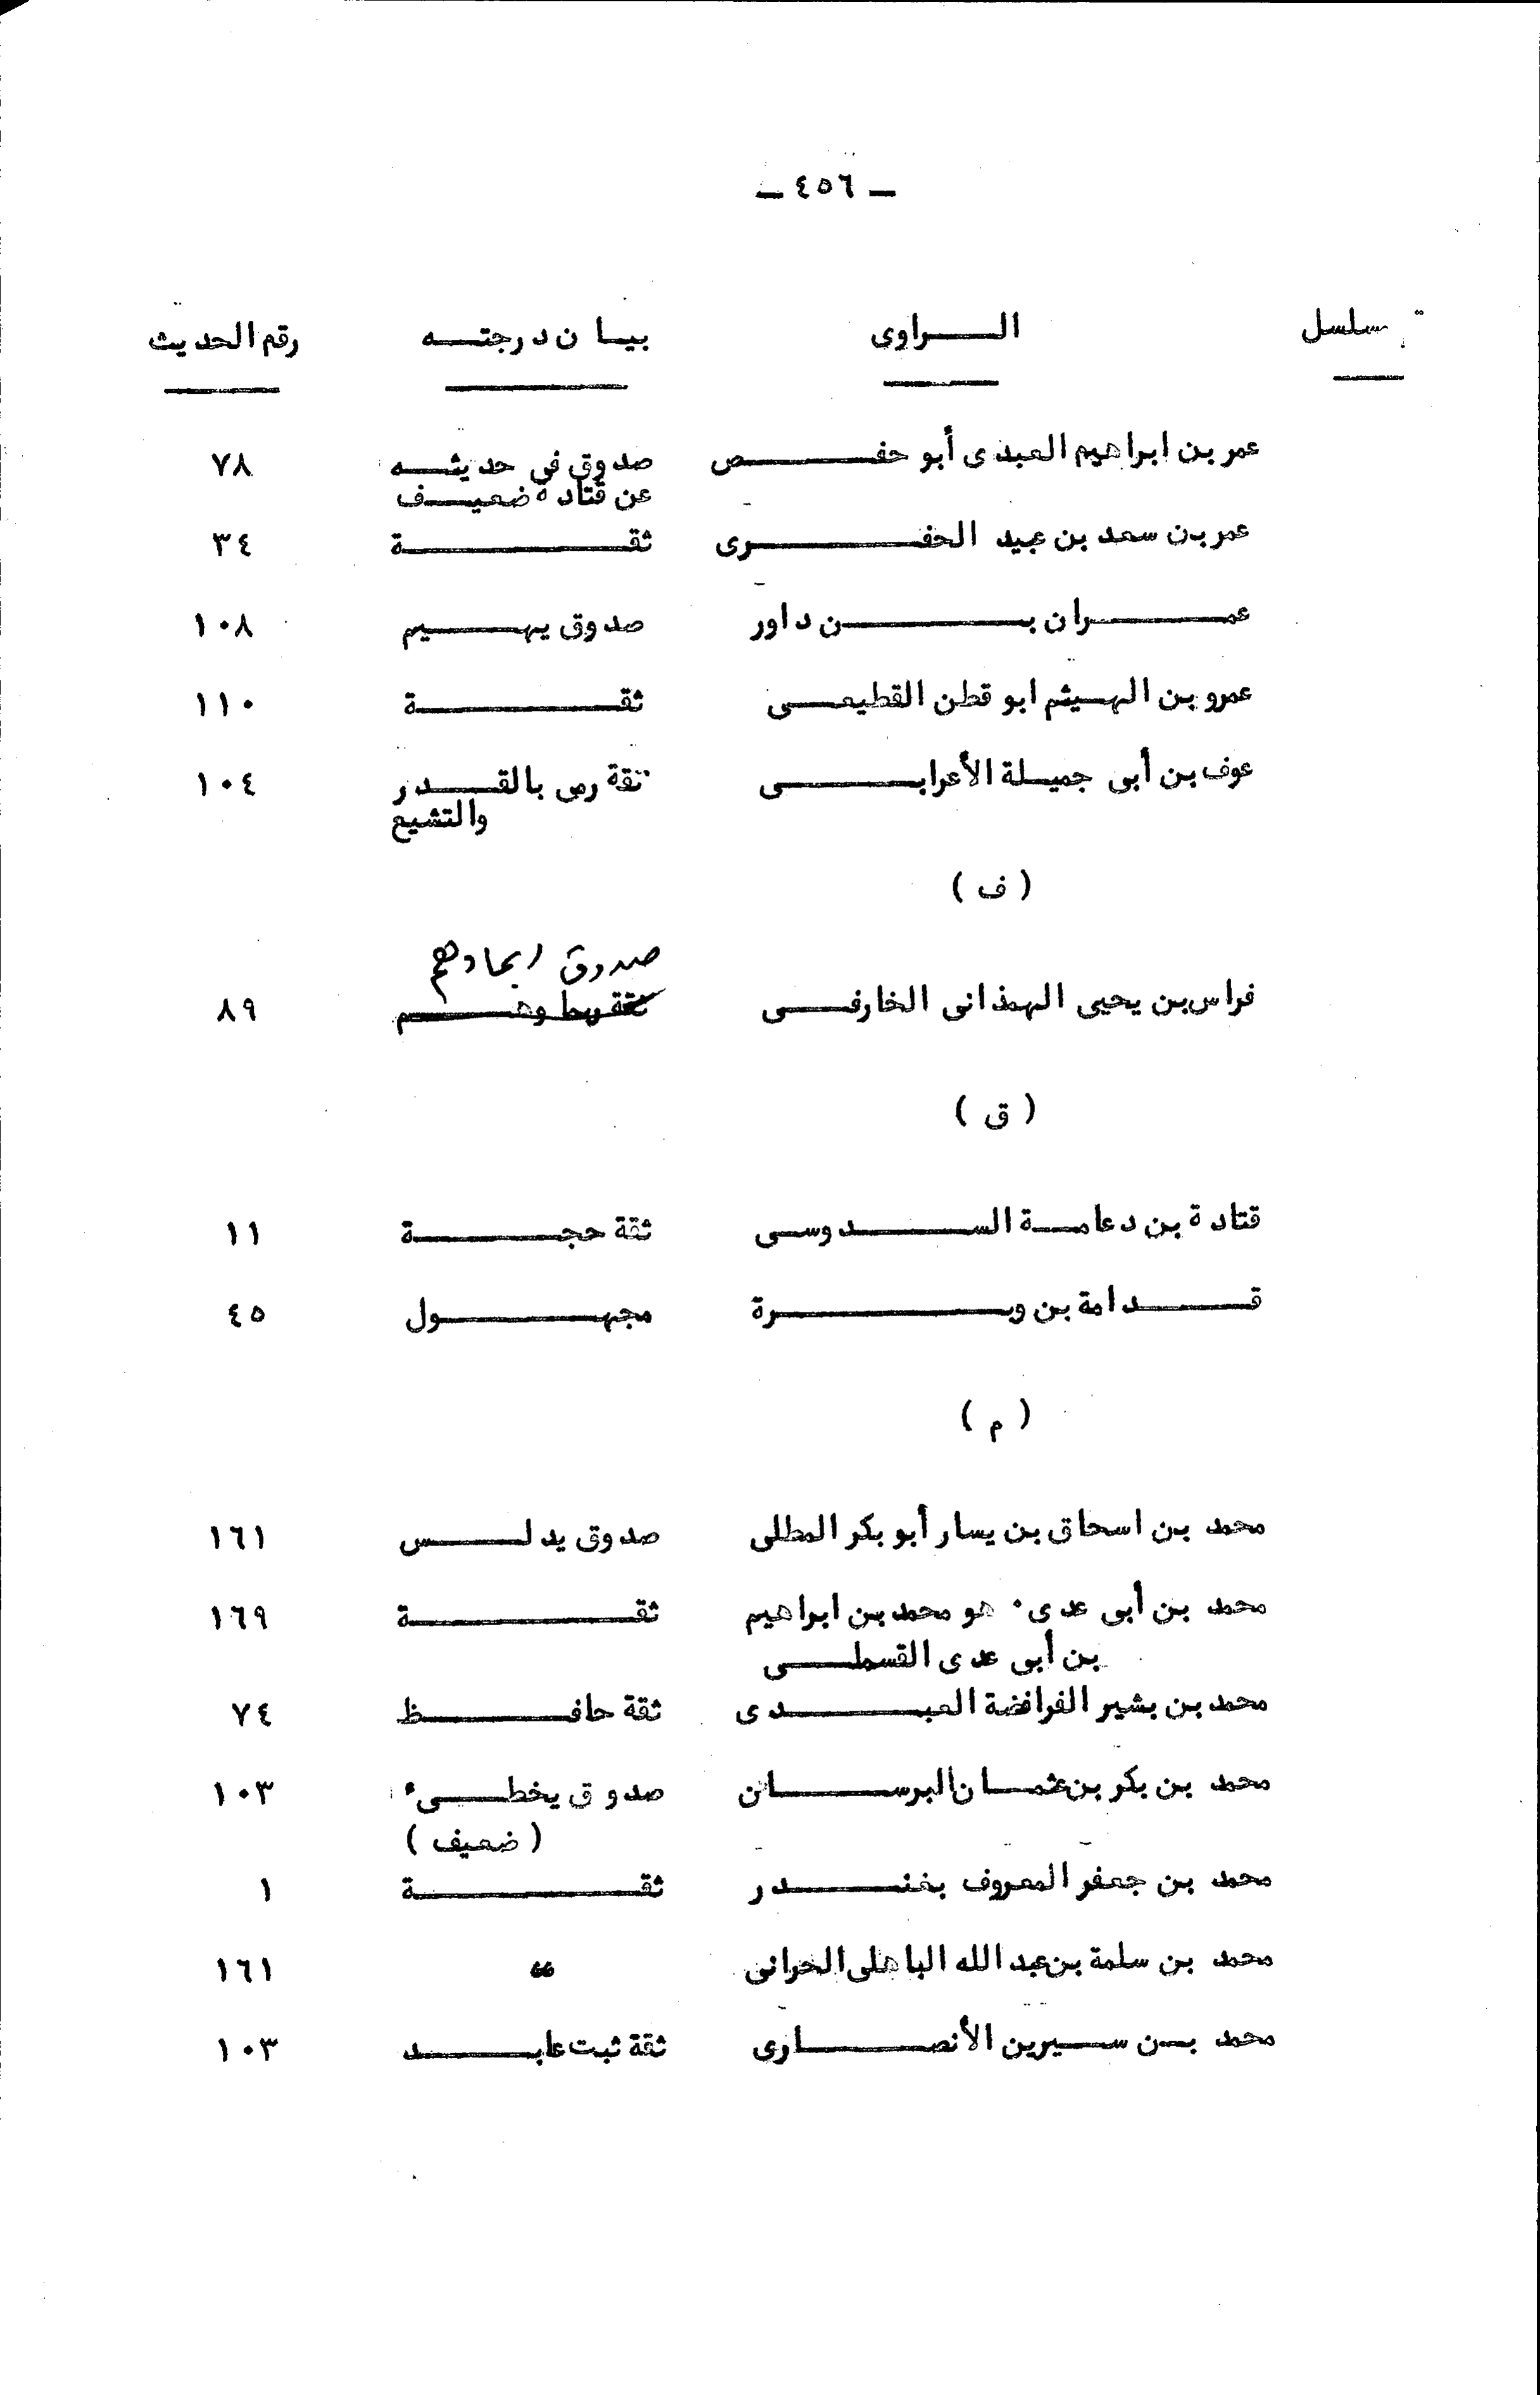 ـ ٤٥٦ ـ
سلسل الراوى بيان درجته رقم الحديث
عمر بن ابراهيم العبدى أبو حفص صدوق فى حديثه ٧٨
عن قتادة ضعيف
عمر بن سعد بن عبيد الحفرى ثقة ٣٤
عمران بن داور صدوق يهيم ١٠٨
عمرو بن الهيثم ابو قطن القطيعى ثقة ١١٠
عوف بن أبى جميلة الأعرابى ثقة رمى بالقدر ١٠٤
والتشيع
( ف )
صدوق ربما وهم
فراس بن يحيى الهمذانى الخارفى ثقة ربما وهم ٨٩
( ق )
قتادة بن دعامة السدوسى ثقة حجة ١١
قدامة بن وبرة مجهول ٤٥
( م )
محمد بن اسحاق بن يسار أبو بكر المطلى صدوق يدلس ١٦١
محمد بن أبى عدى٠ هو محمد بن ابراهيم ثقة ١٦٩
بن أبى عدى القسملى
محمد بن بشير الفرافضة العبدى ثقة حافظ ٧٤
محمد بن بكر بن عثمان البرسان صدوق يخطىء ١٠٣
( ضعيف )
محمد بن جعفر المعروف بغندر ثقة ١
محمد بن سلمة بن عبد الله الباهلى الحرانى " ١٦١
محمد بن سيرين الأنصارى ثقة ثبت عابد ١٠٣